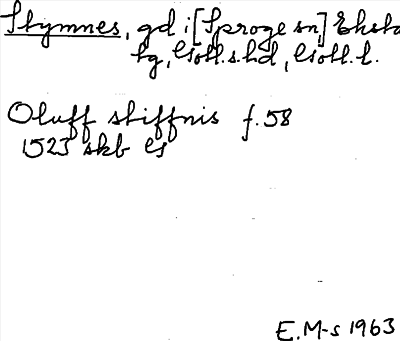 Stymnes, gd i [Sproge sn] Eksta
tg, Gotl.s.hd, Gotl.l.
Oluff stiffnis f. 58
1523 skb G
E.M-s 1963